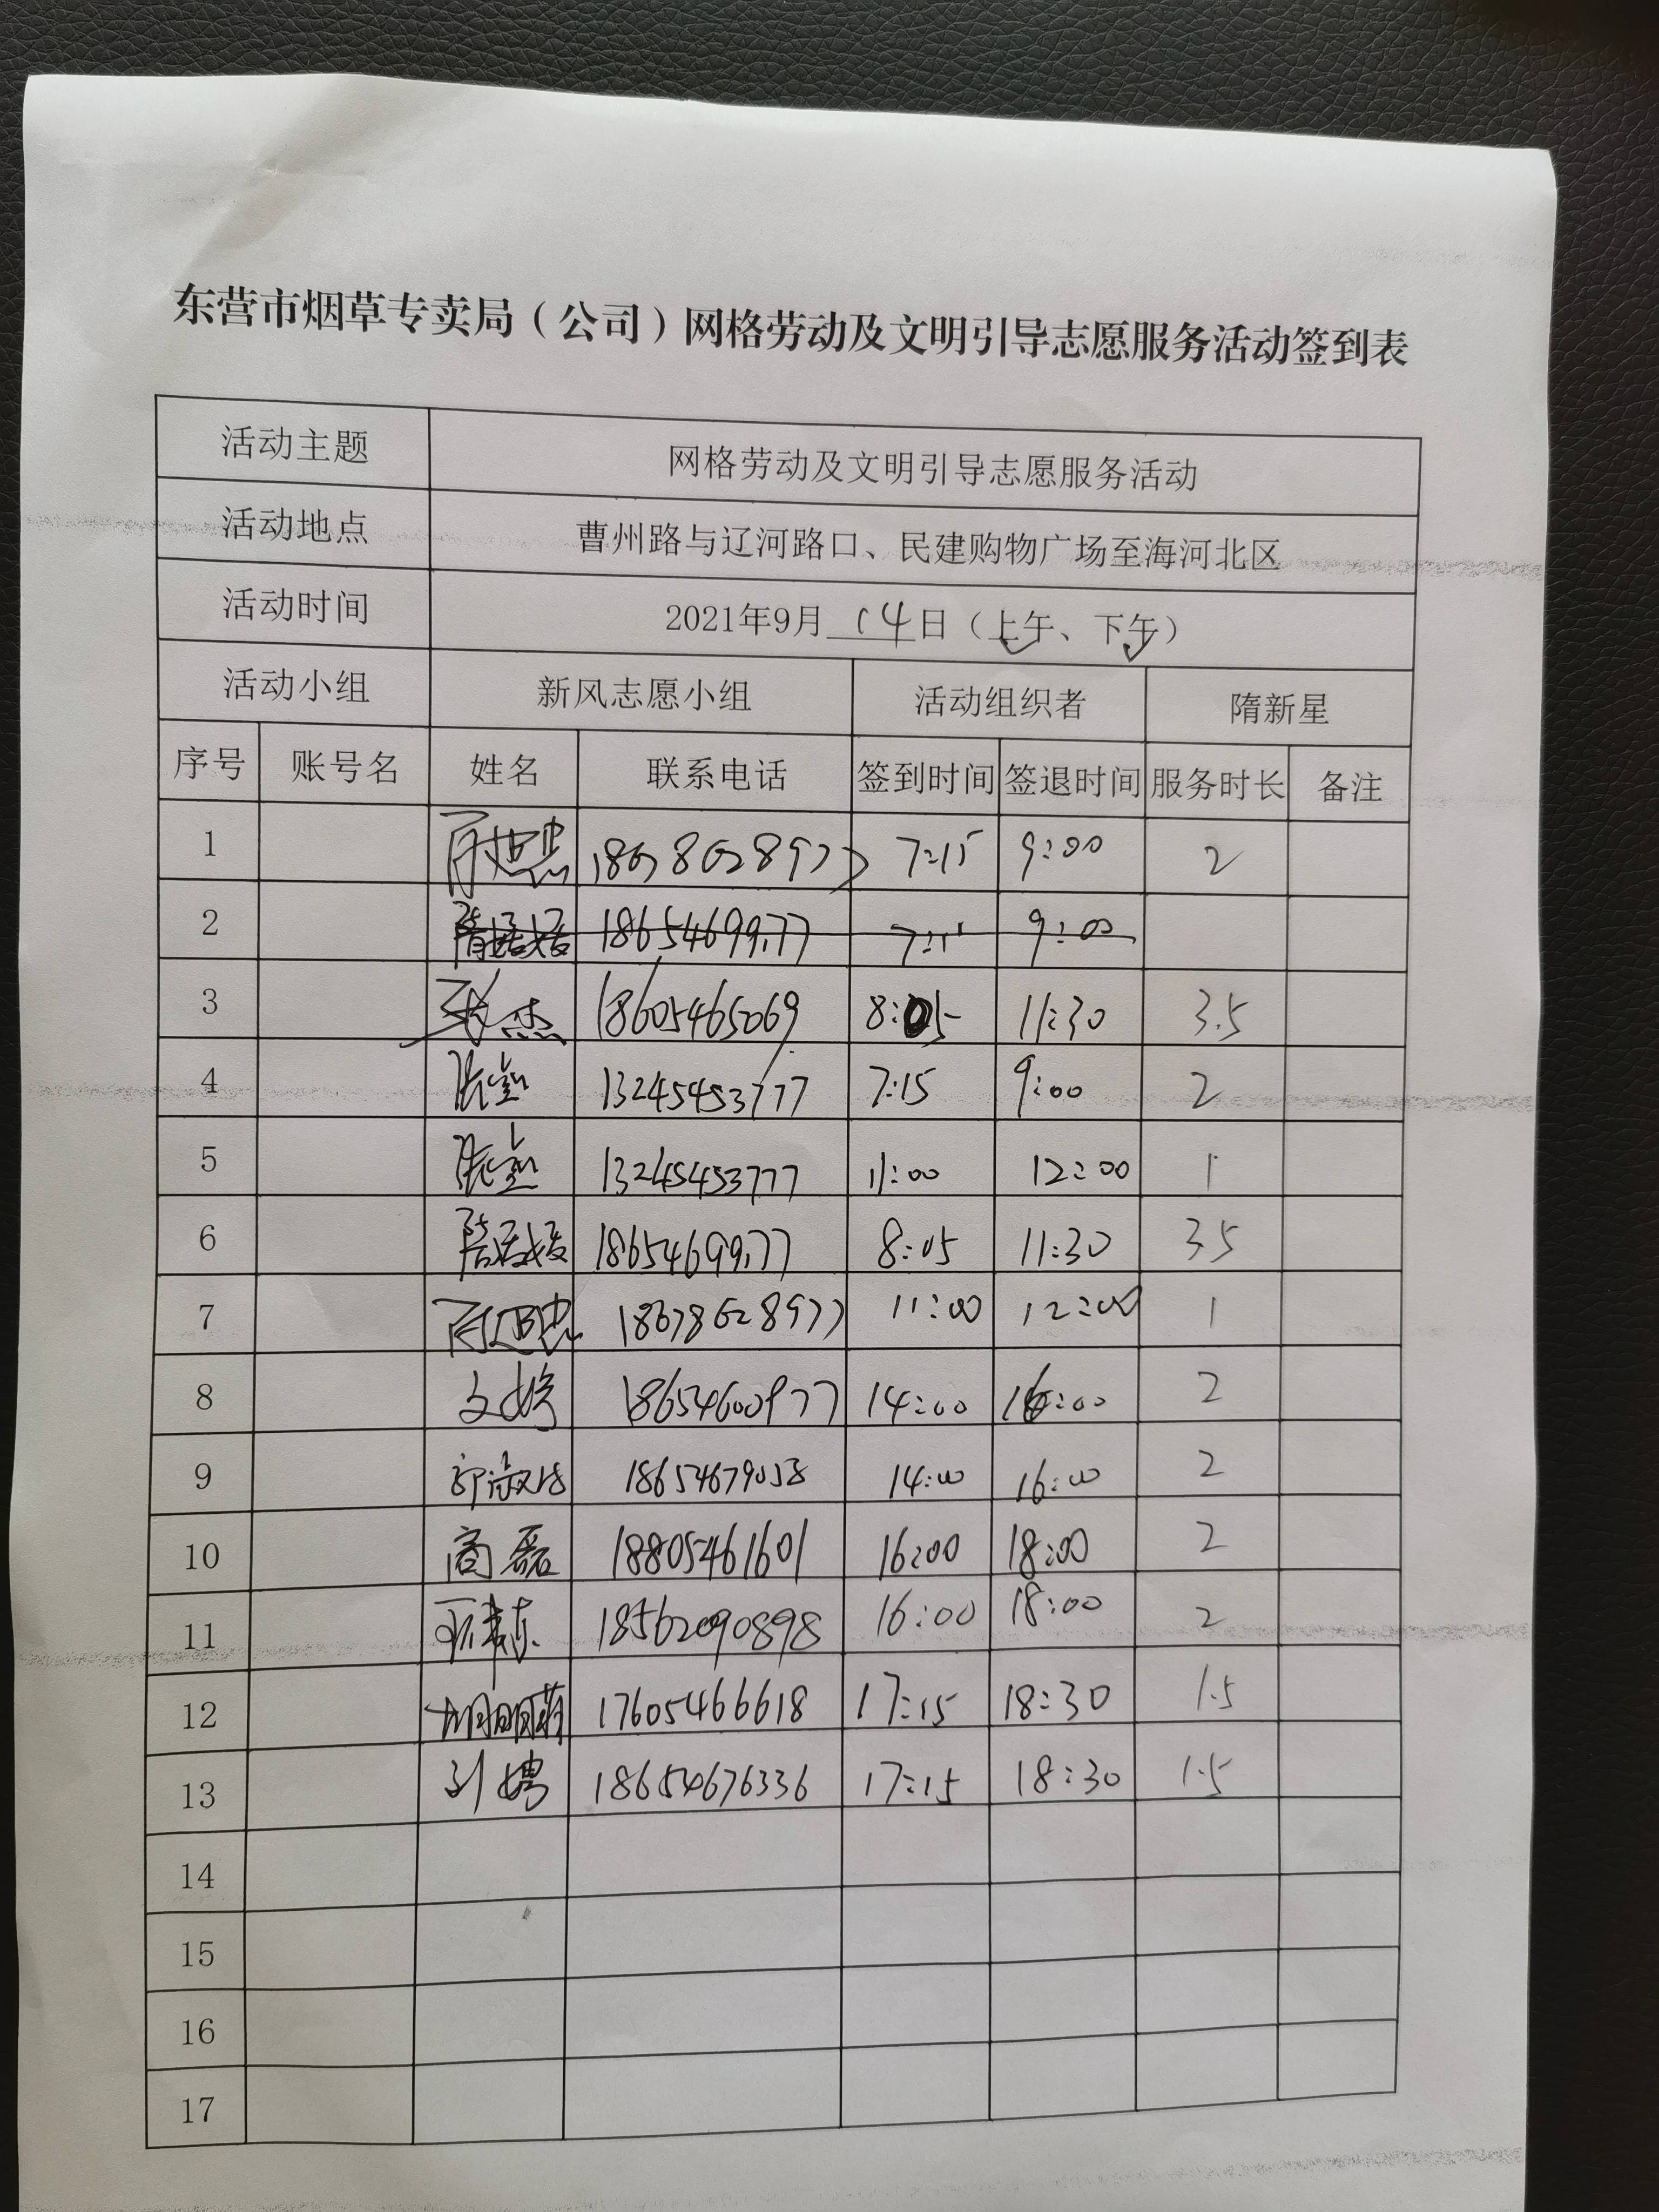 东营市烟草专卖局（公司）网格劳动及文明引导志愿服务活动签到表
活动主题 网格劳动及文明引导志愿服务活动
活动地点 曹州路与辽河路口、民建购物广场至海河北区
活动时间 2021年9月14日（上午、下午）
活动小组 新风志愿小组 活动组织者 隋新星
序号 账号名 姓名 联系电话 签到时间 签退时间 服务时长 备注
1 7:15 9:00 2
2 9:00
3 张杰 18605465069 8:05 11:30 3.5
4 13245453777 7:15 9:00 2
5 13245453777 11:00 12:00 1
6 8:05 11:30 3.5
7 18678628977 11:00 12:00 1
8 文婷 18654600977 14:00 16:00 2
9 14:00 16:00 2
10 商磊 18805461601 16:00 18:00 2
11 18562090898 16:00 18:00 2
12 胡明萌 17605466618 17:15 18:30 1.5
13 刘娉 18654676336 17:15 18:30 1.5
14
15
16
17